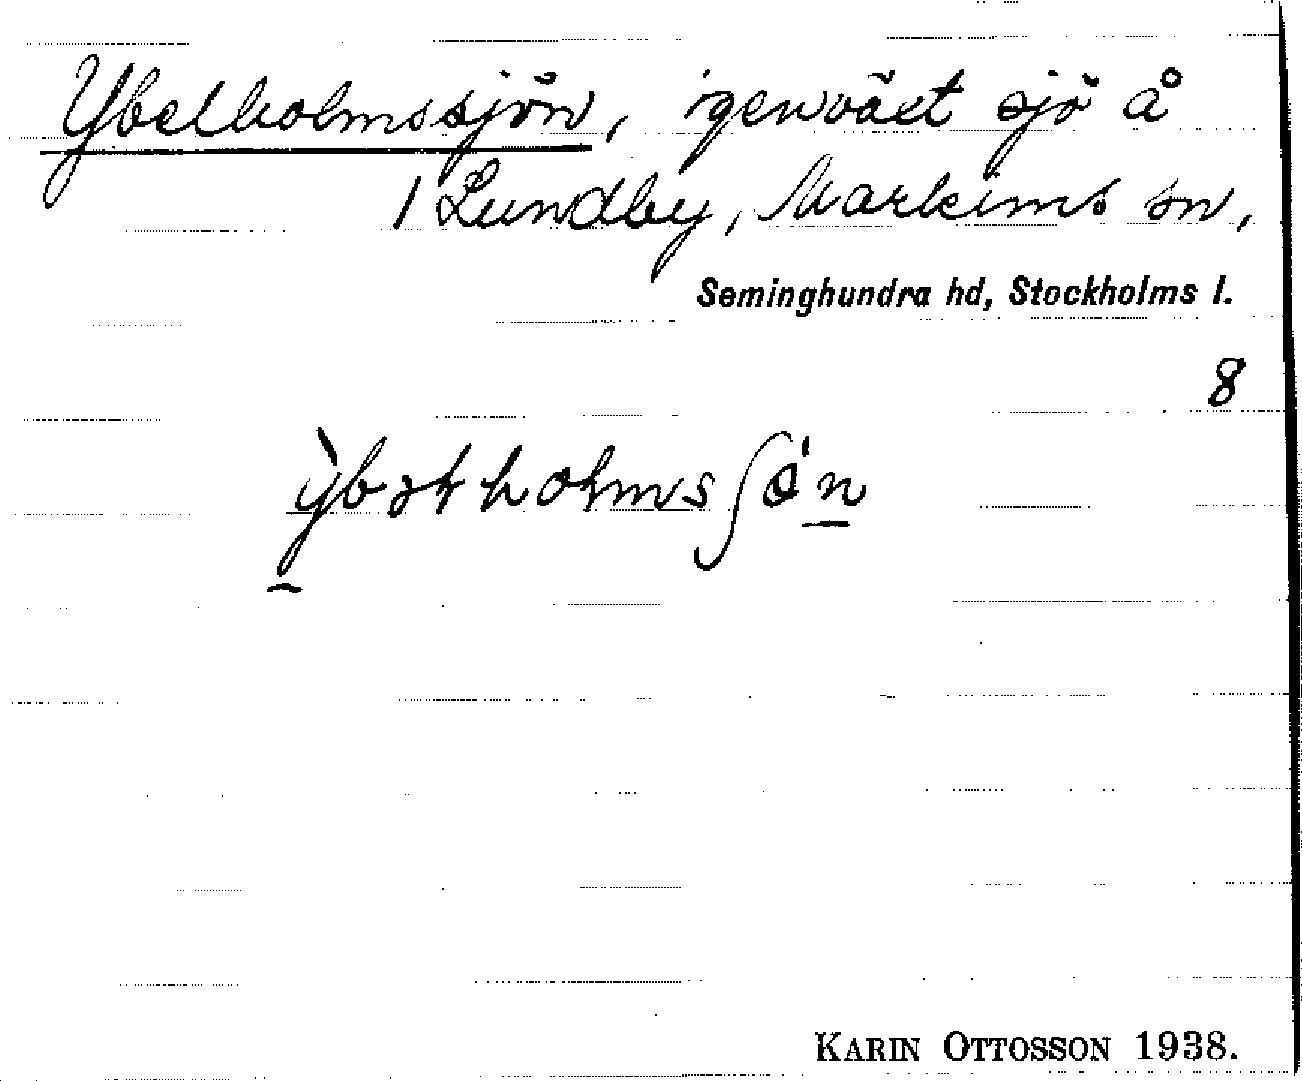 Ybelholmssjön, igenväxt sjö å
1 Lundby, Markims sn,
Seminghundra hd, Stockholms l.
8
KARIN OTTOSSON 1938.